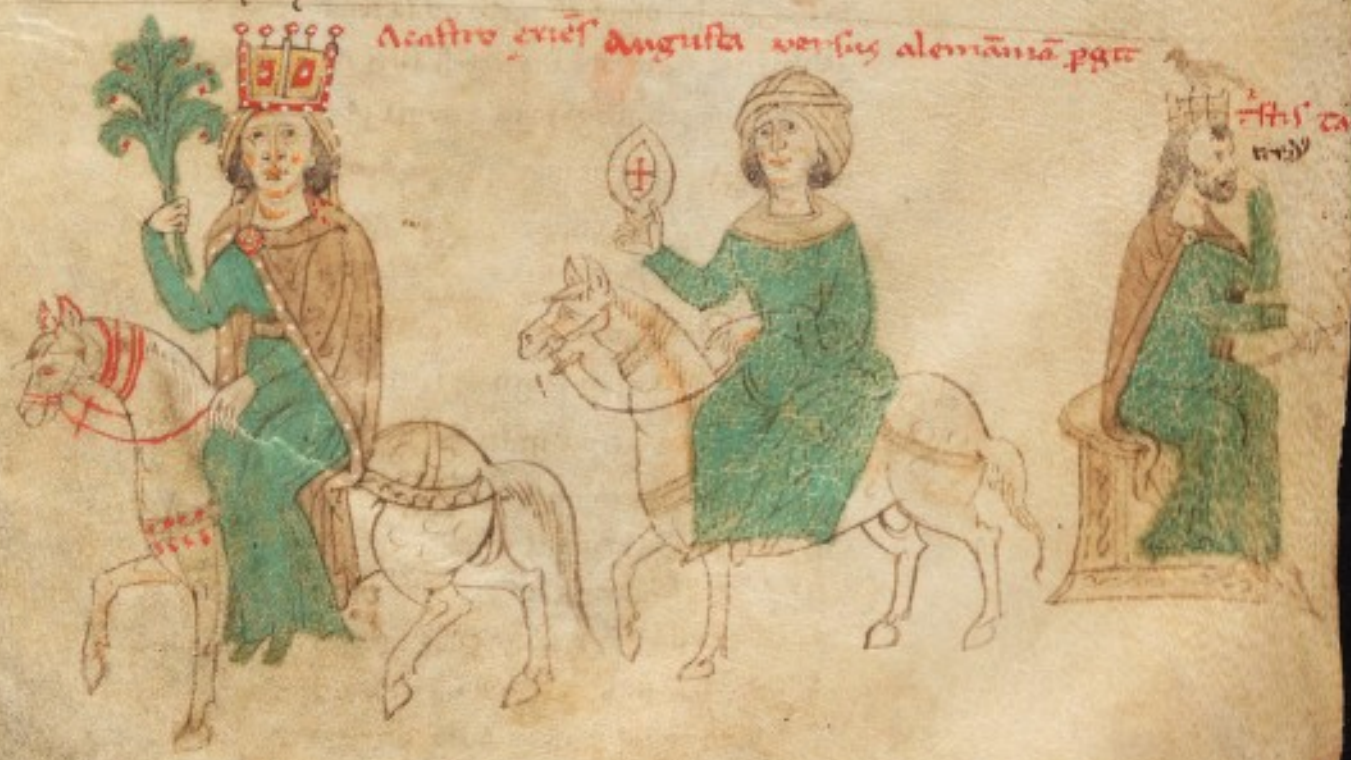 A castro exiēs Augusta versus alemāniā pgit